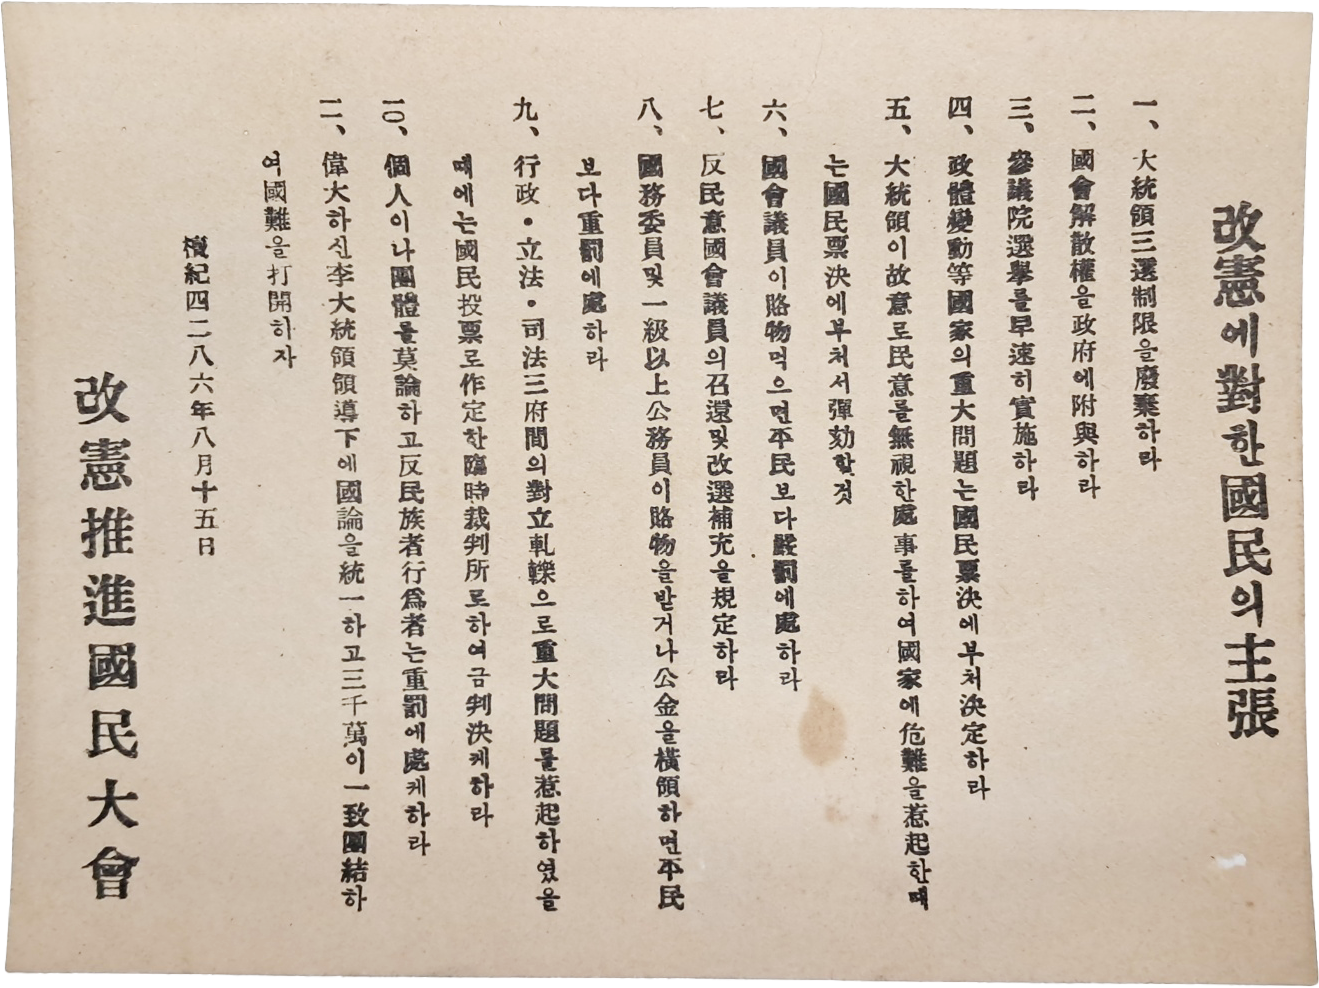 改憲에對한國民의主張
一、大統領三選制限을廢棄하라
二、國會解散權을政府에附與하라
三、參議院選擧를早速히實施하라
四、政體變動等國家의重大問題는國民票決에부처決定하라
五、大統領이故意로民意를無視한處事를하여國家에危難을惹起한때
는國民票決에부처서彈劾할것
六、國會議員이賂物먹으면平民보다嚴罰에處하라
七、反民意國會議員의召還및改選補充을規定하라
八、國務委員및一級以上公務員이賂物을받거나公金을橫領하면平民
보다重罰에處하라
九、行政・立法・司法三府間의對立軋轢으로重大問題를惹起하였을
때에는國民投票로作定한臨時裁判所로하여금判決케하라
一〇、個人이나團體를莫論하고反民族者行爲者는重罰에處케하라
一一、偉大하신李大統領領導下에國論을統一하고三千萬이一致團結하
여國難을打開하자
檀紀四二八六年八月十五日
改憲推進國民大會